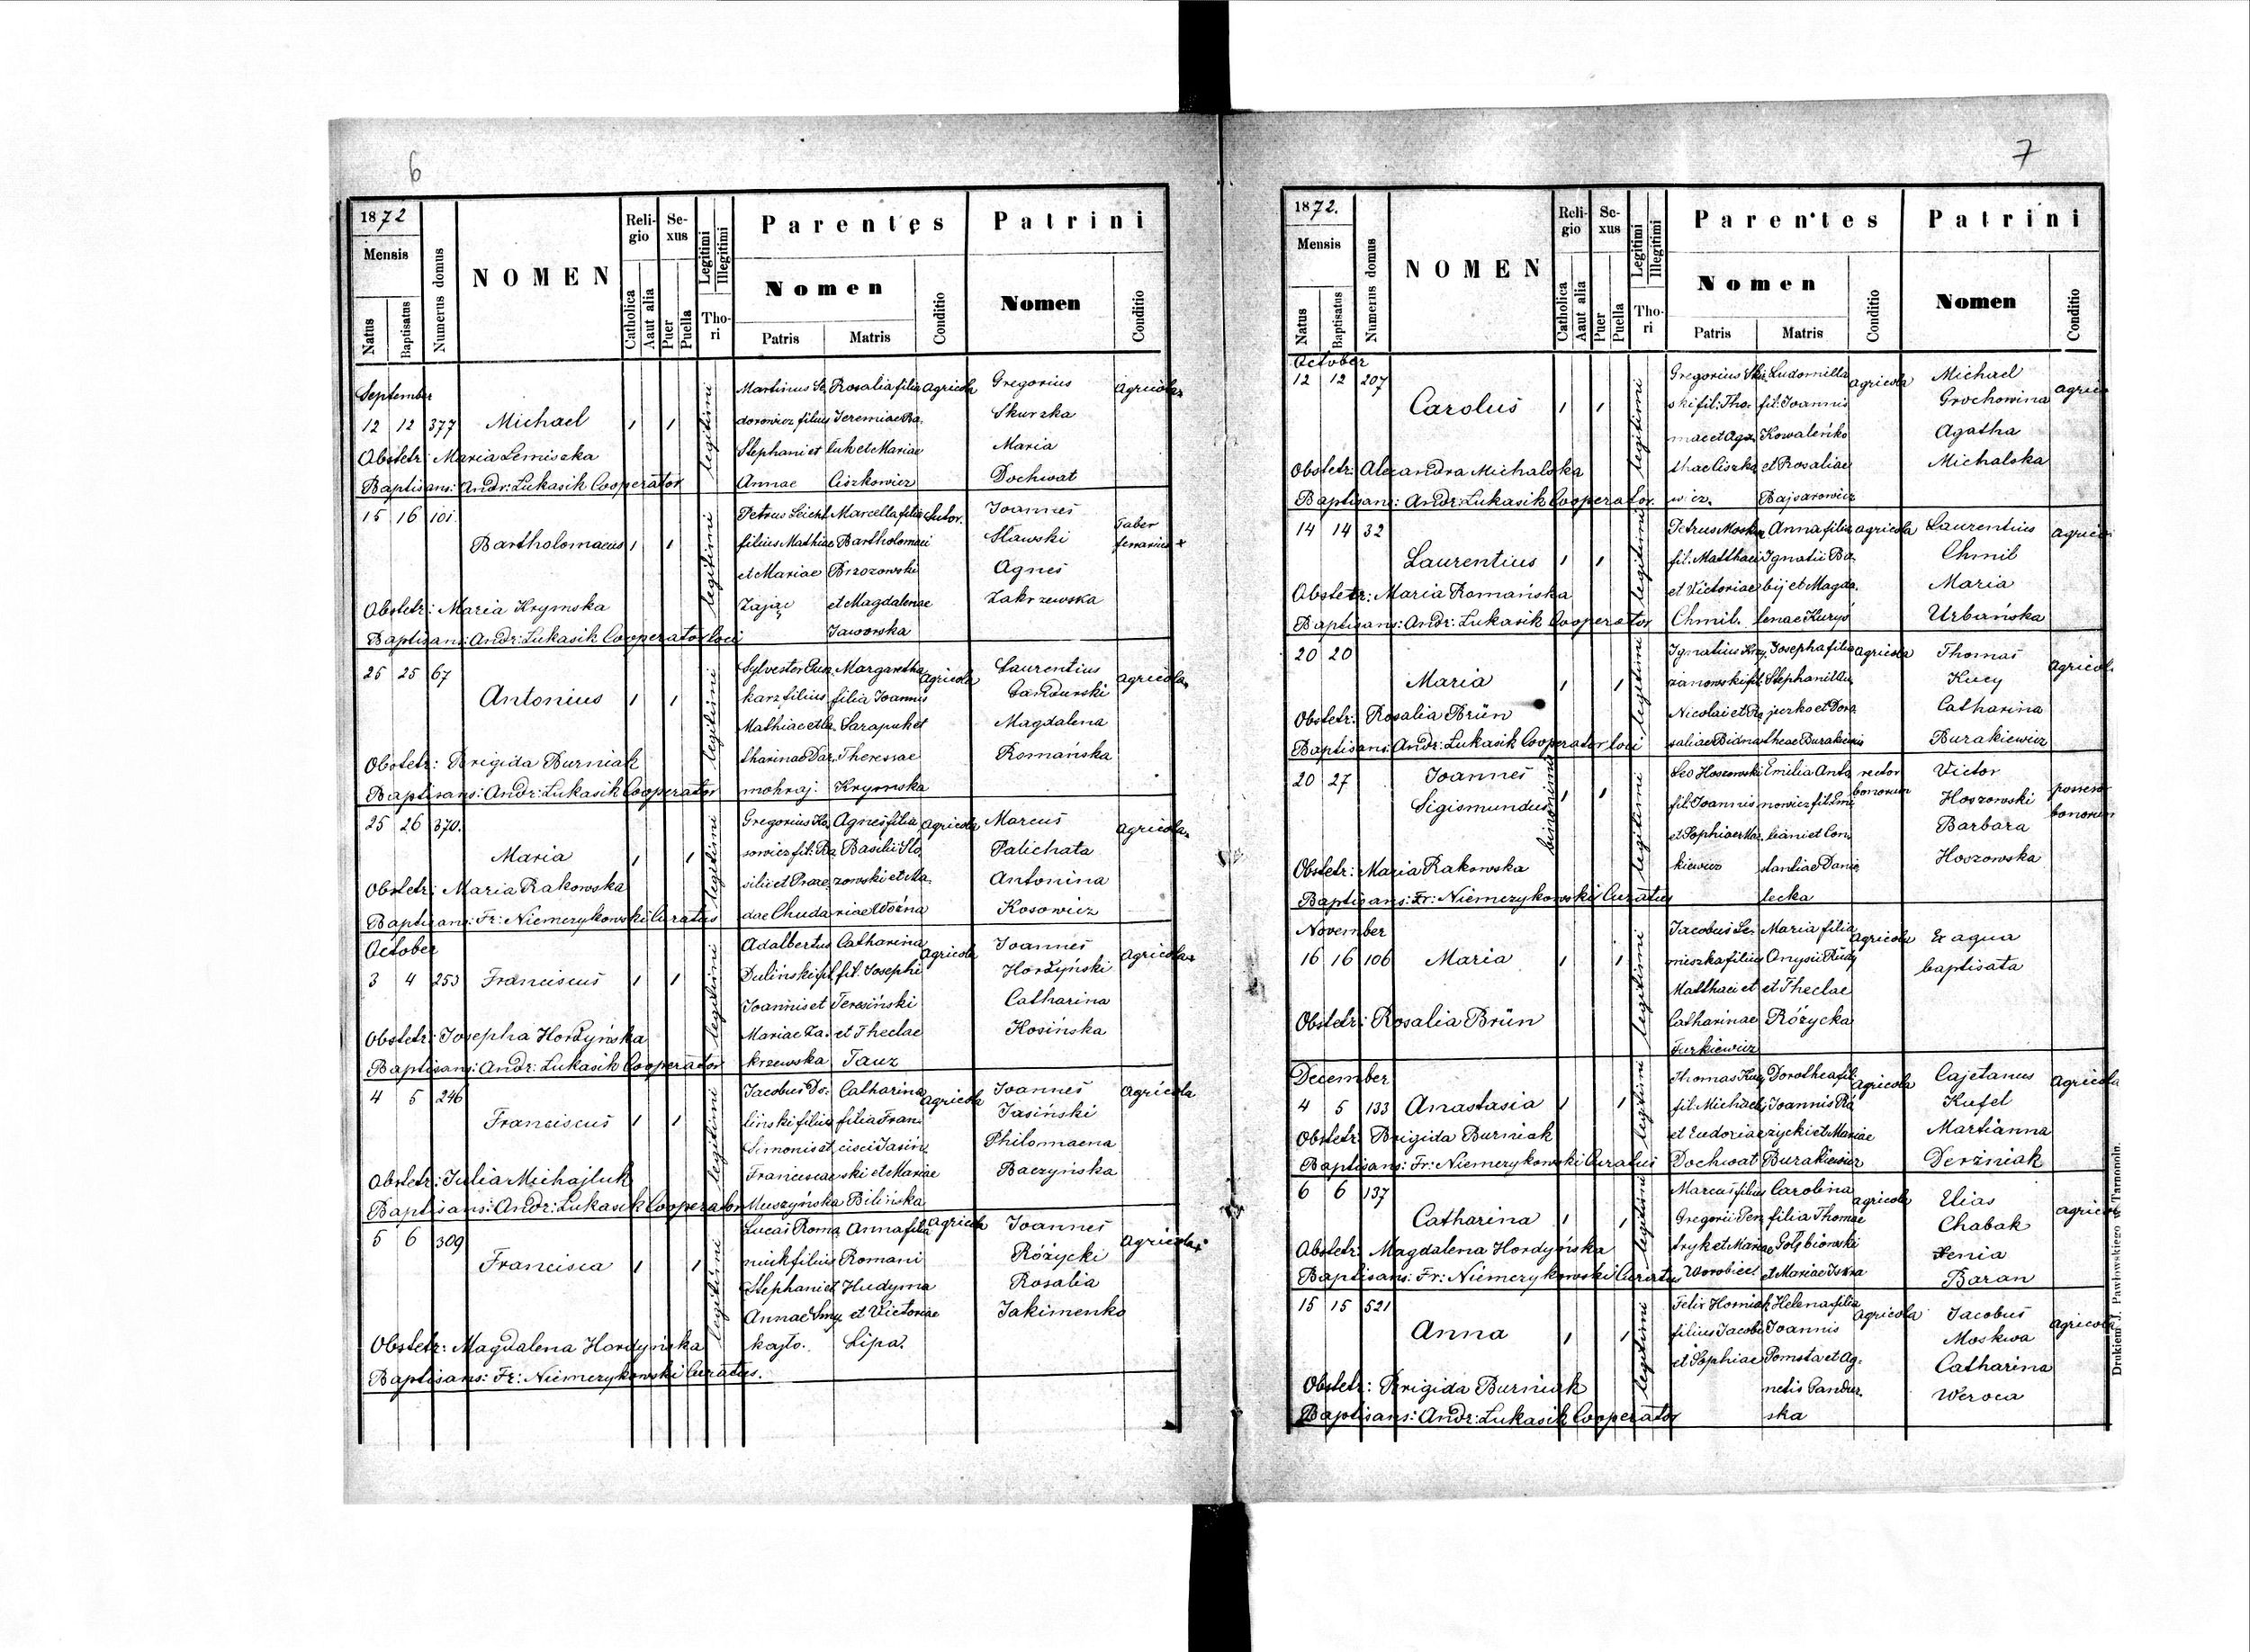 6
1872
Mensis
Natus
Baptisatus
Numerus domus
NOMEN
Religio
Catholica
Aaut alia
Sexus
Puer
Puella
Legitimi
Illegitimi
Thori
Parentes
Nomen
Patris
Matris
Conditio
Patrini
Nomen
Conditio
September
12 12 377 Michael 1 1 legitimi
Martinus Se
dorowicz filius
Stephani et
Annae
Rosalia filia
Jeremiae Ba
luk et Mariae
Ciszkowicz
Agricola
Gregorius
Skurzka
Maria
Dochwat
Agricola
Obstetr: Maria Lemiszka
Baptisans: Andr: Lukasik Cooperator
15 16 101 Bartholomaeus 1 1 legitimi
Petrus Leicht
filius Mathiae
et Mariae
Zając
Marcella filia
Bartholomaei
Brzozowski
et Magdalenae
Jaworska
Sutor.
Joannes
Sławski
Agnes
Zakrzewska
Faber
ferrarius
Obstetr: Maria Krymska
Baptisans: Andr: Lukasik Cooperator loci
25 25 67 Antonius 1 1 legitimi
karz filius
Mathiae et Ca
tharinae Dar
mohraj.
Margaretha
filia Joannis
Sarapuk et
Theressae
Krymska
Agricola
Laurentius
Gandurski
Magdalena
Romańska
Agricola
Obstetr: Brigida Burniak
Baptisans: Andr: Lukasik Cooperator
25 26 370. Maria 1 1 legitimi
Gregorius Ko
sowicz fil: Ba
silii et Prae
dae Chuda
Agnes filia
Basilii Slo
zowski et Ma
riae Woźna
Agricola
Marcus
Palichata
Antonina
Kosowicz
Agricola
Obstetr: Maria Rakowska
Baptisans: Fr: Niemczykowski Curatus
October
3 4 253 Franciscus 1 1 legitimi
Adalbertus
Dulinski fil
Joannis et
Mariae Za
krzewska
Catharina
fil: Josephi
Teresiński
et Theclae
Tauz
Agricola
Joannes
Hordyński
Catharina
Kosińska
Agricola
Obstetr: Josepha Hordyńska
Baptisans: Andr: Lukasik Cooperator
4 5 246 Franciscus 1 1 legitimi
Jacobus Do
linski filius
Simonis et
Franciscae
Muszyńska
Catharina
filia Fran
cisci Jasiń
ski et Mariae
Bilińska
Agricola
Joannes
Jasiński
Philomaena
Baczyńska
Agricola
Obstetr: Julia Michajluk
Baptisans: Andr: Lukasik Cooperator
5 6 309 Francisca 1 1 legitimi
Lucas Roma
niuk filius
Stephani et
Annae Smy
kajlo.
Anna filia
Romani
Hudyma
et Victoriae
Lipa.
Agricola
Joannes
Różycki
Rosalia
Jakimenko
Agricola
Obstetr: Magdalena Hordyńska
Baptisans: Fr: Niemczykowski Curatus.
7
1872.
Mensis
Natus
Baptisatus
Numerus domus
NOMEN
Religio
Catholica
Aaut alia
Sexus
Puer
Puella
Legitimi
Illegitimi
Thori
Parentes
Nomen
Patris
Matris
Conditio
Patrini
Nomen
Conditio
October
12 12 207 Carolus 1 1 legitimi
Gregorius Ski
ski fil: Tho
mae et Aga
thae Ciszka
wicz.
Ludomilla
fil: Joannis
Kowaleńko
et Rosaliae
Bajsarowicz
agricola
Michael
Grochowina
Agatha
Michalska
agric
Obstetr: Alexandra Michalska
Baptisans: Andr: Lukasik Cooperator.
14 14 32 Laurentius 1 1 legitimi
Petrus Moskwa
fil: Matthaei
et Victoriae
Chmil.
Anna filia
Ignatii Ba
bij et Magda
lenae Kuryś
agricola
Laurentius
Chmil
Maria
Urbańska
agric
Obstetr: Maria Romańska
Baptisans: Andr: Lukasik Cooperator
20 20 Maria 1 1 legitimi
Ignatius Krzy
zanowski fil
Nicolai et Ro
saliae Bidna
Josepha filia
jurko et Doro
theae Burakiewicz
agricola
Thomas
Kucy
Catharina
Burakiewicz
agricol
Obstetr: Rosalia Brün
Baptisans: Andr: Lukasik Cooperator loci
20 27 Joannes
Sigismundus
binominis
1 1 legitimi
Leo Hoszowski
fil: Joannis
et Sophiae Mar
kiewicz
Emilia Anto
nowicz fil: Emi
liani et Con
stantiae Danie
lecka
rector
bonorum
Victor
Hoszowski
Barbara
Hoszowska
possesor
bonorum
Obstetr: Maria Rakowska
Baptisans: Fr: Niemczykowski Curatus
November
16 16 106 Maria 1 1 legitimi
Jacobus Le
miszka filius
Matthaei et
Catharinae
Jurkiewicz
Maria filia
Onysii Rudy
et Theclae
Różycka
Agricola
Ex aqua
baptisata
Obstetr: Rosalia Brün
December
4 5 133 Anastasia 1 1 legitimi
Thomas Kucy
fil: Michaeli
et Eudoxiae
Dochwat
Dorothea fil:
Joannis Ró
życki et Mariae
Burakiewicz
agricola
Cajetanus
Kufel
Martianna
Derźniak
agricola
Obstetr: Brigida Burniak
Baptisans: Fr: Niemczykowski Curatus
6 6 137 Catharina 1 1 legitimi
Marcus filius
Gregorii Pen
tryk et Mariae
Worobiec.
Carolina
filia Thomae
Gołębiowski
et Mariae Iskra
agricola
Elias
Chabak
Xenia
Baran
agricol
Obstetr: Magdalena Hordyńska
Baptisans: Fr: Niemczykowski Curatus
15 15 521 Anna 1 1 legitimi
Felix Horniak
filius Jacobi
et Sophiae
Helena filia
Joannis
Pomsta et Ag
netis Gandur
ska
Agricola
Jacobus
Moskwa
Catharina
Weroca
agricola
Obstetr: Brigida Burniak
Baptisans: Andr: Lukasik Cooperator
Drukiem J. Pawłowskiego w Tarnopolu.